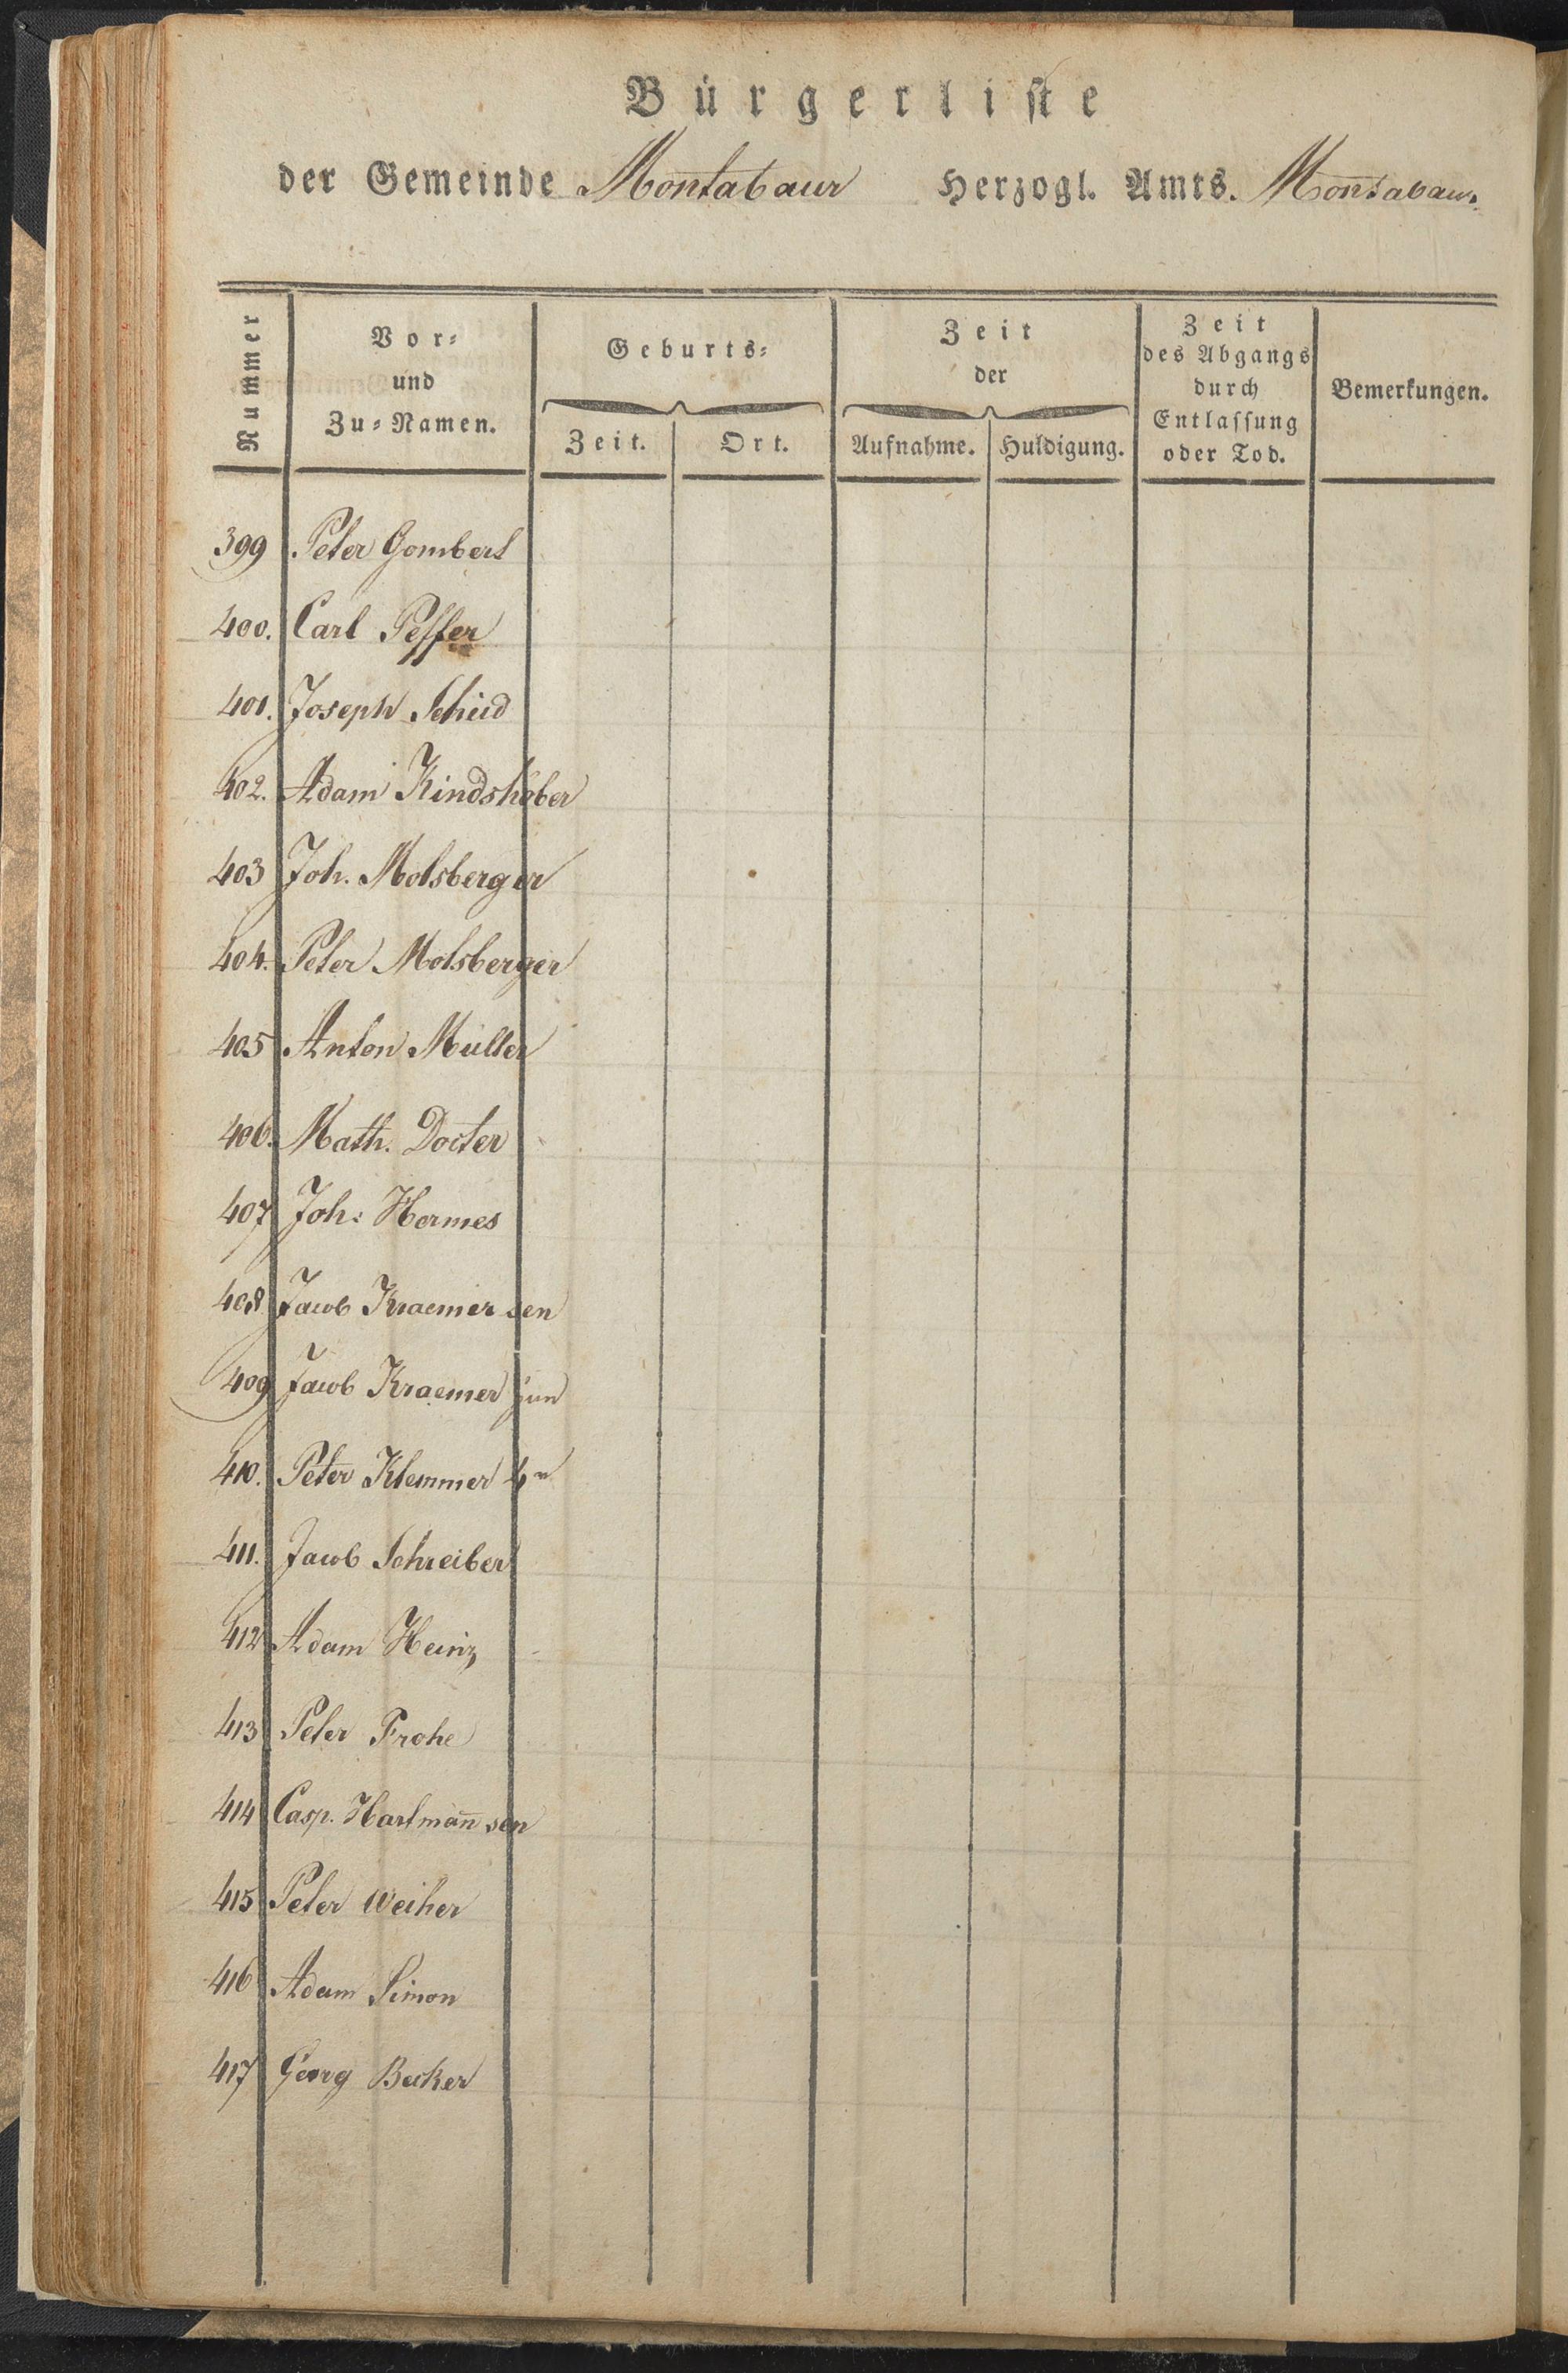 Bürgerliste
der Gemeinde Montabaur Herzogl. Amts. Montabaur.
Nummer
Vor-
und
Zu-Namen.
Geburts-
Zeit. Ort.
Zeit
der
Aufnahme. Huldigung.
Zeit
des Abgangs
durch
Entlassung
oder Tod.
Bemerkungen.
399 Peter Gombert
400. Carl Peffer
401. Joseph Scheid
402. Adam Kindshober
403 Joh. Molsberger
404. Peter Molsberger
405 Anton Müller
406. Math. Docter
407 Joh: Hermes
408. Jacob Kraemer sen
409 Jacob Kraemer jun
410. Peter Klemmer
411. Jacob Schreiber
412 Adam Heinz
413 Peter Frohe
414 Casp. Hartman̅ sen
415 Peter Weiher
416 Adam Simon
417 Georg Becker